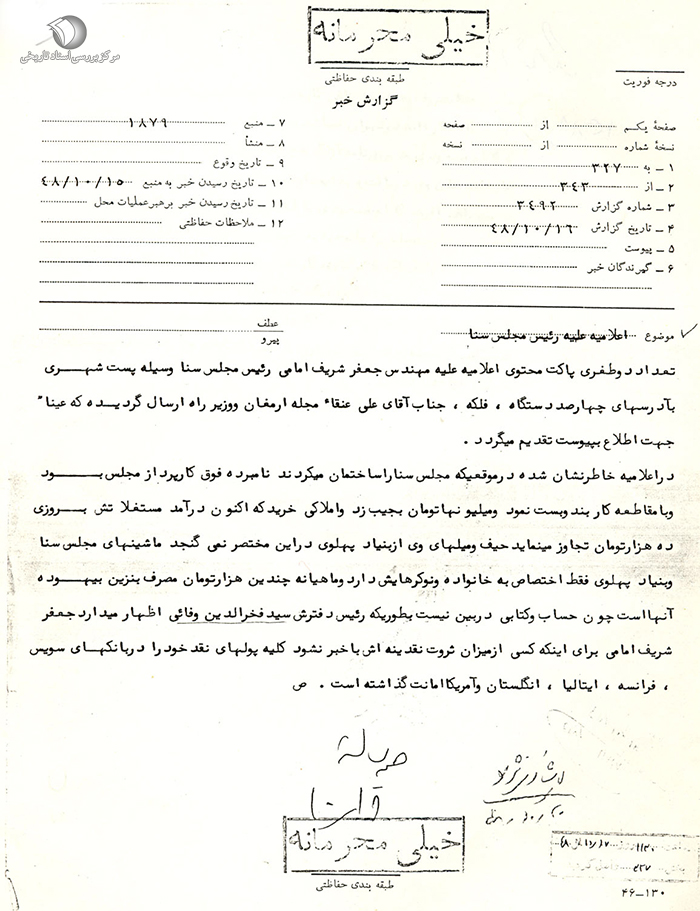 مرکز بررسی اسناد تاریخی
خیلی محرمانه
طبقه بندی حفاظتی
گزارش خبر
درجه فوریت
صفحهٔ یکم از صفحه
نسخهٔ شماره از نسخه
۱ ـ به ۳۲۷
۲ ـ از ۳۴۳
۳ ـ شماره گزارش ۳۴۹۲
۴ ـ تاریخ گزارش ۴۸/۱۰/۱۶
۵ ـ پیوست
۶ ـ گیرندگان خبر
۷ ـ منبع ۱۸۷۹
۸ ـ منشأ
۹ ـ تاریخ وقوع
۱۰ ـ تاریخ رسیدن خبر به منبع ۴۸/۱۰/۱۵
۱۱ ـ تاریخ رسیدن خبر برهبر عملیات محل
۱۲ ـ ملاحظات حفاظتی
موضوع اعلامیه علیه رئیس مجلس سنا
عطف
پیرو
تعداد دوطغری پاکت محتوی اعلامیه علیه مهندس جعفر شریف امامی رئیس مجلس سنا وسیله پست شهری
بآدرسهای چهارصد دستگاه ، فلکه ، جناب آقای علی عنقاء مجله ارمغان ووزیر راه ارسال گردیده که عیناً
جهت اطلاع بپیوست تقدیم میگردد .
دراعلامیه خاطرنشان شده درموقعیکه مجلس سنا راساختمان میکردند نامبرده فوق کارپرداز مجلس بود
وبا مقاطعه کار بند وبست نمود ومیلیونها تومان بجیب زد واملاکی خرید که اکنون درآمد مستغلاتش بروزی
ده هزارتومان تجاوز مینماید حیف ومیلهای وی ازبنیاد پهلوی دراین مختصر نمی گنجد ماشینهای مجلس سنا
وبنیاد پهلوی فقط اختصاص به خانواده ونوکرهایش دارد وماهیانه چندین هزارتومان مصرف بنزین بیهوده
آنها است چون حساب وکتابی دربین نیست بطوریکه رئیس دفترش سید فخرالدین وفائی اظهار میدارد جعفر
شریف امامی برای اینکه کسی ازمیزان ثروت نقدینه اش با خبر نشود کلیه پولهای نقد خود را دربانکهای سویس
، فرانسه ، ایتالیا ، انگلستان وآمریکا امانت گذاشته است . ص
خیلی محرمانه
طبقه بندی حفاظتی
۴۶ـ۱۳۰